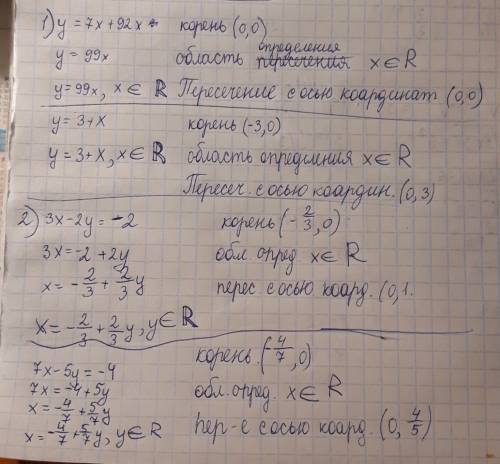 1) y = 7x + 92x корень (0,0)
y = 99x область определения x ∈ R
y = 99x, x ∈ R Пересечение с осью коардинат (0,0)
y = 3 + x корень (-3,0)
y = 3 + x, x ∈ R область определния x ∈ R
Пересеч. с осью коардин. (0,3)
2) 3x - 2y = -2 корень (-2/3, 0)
3x = -2 + 2y обл. опред x ∈ R
x = -2/3 + 2/3 y перес с осью коард. (0,1.
x = -2/3 + 2/3 y, y ∈ R
7x - 5y = -4 корень (-4/7, 0)
7x = -4 + 5y обл. опред. x ∈ R
x = -4/7 + 5/7 y пер-е с осью коард. (0, 4/5)
x = -4/7 + 5/7 y, y ∈ R